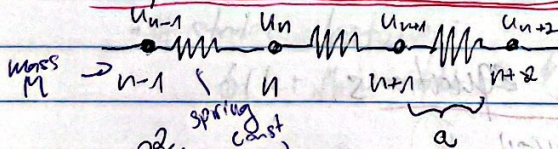 u_{n-1} u_n u_{n+1} u_{n+2}
mass M → n-1 n n+1 n+2
spring const a